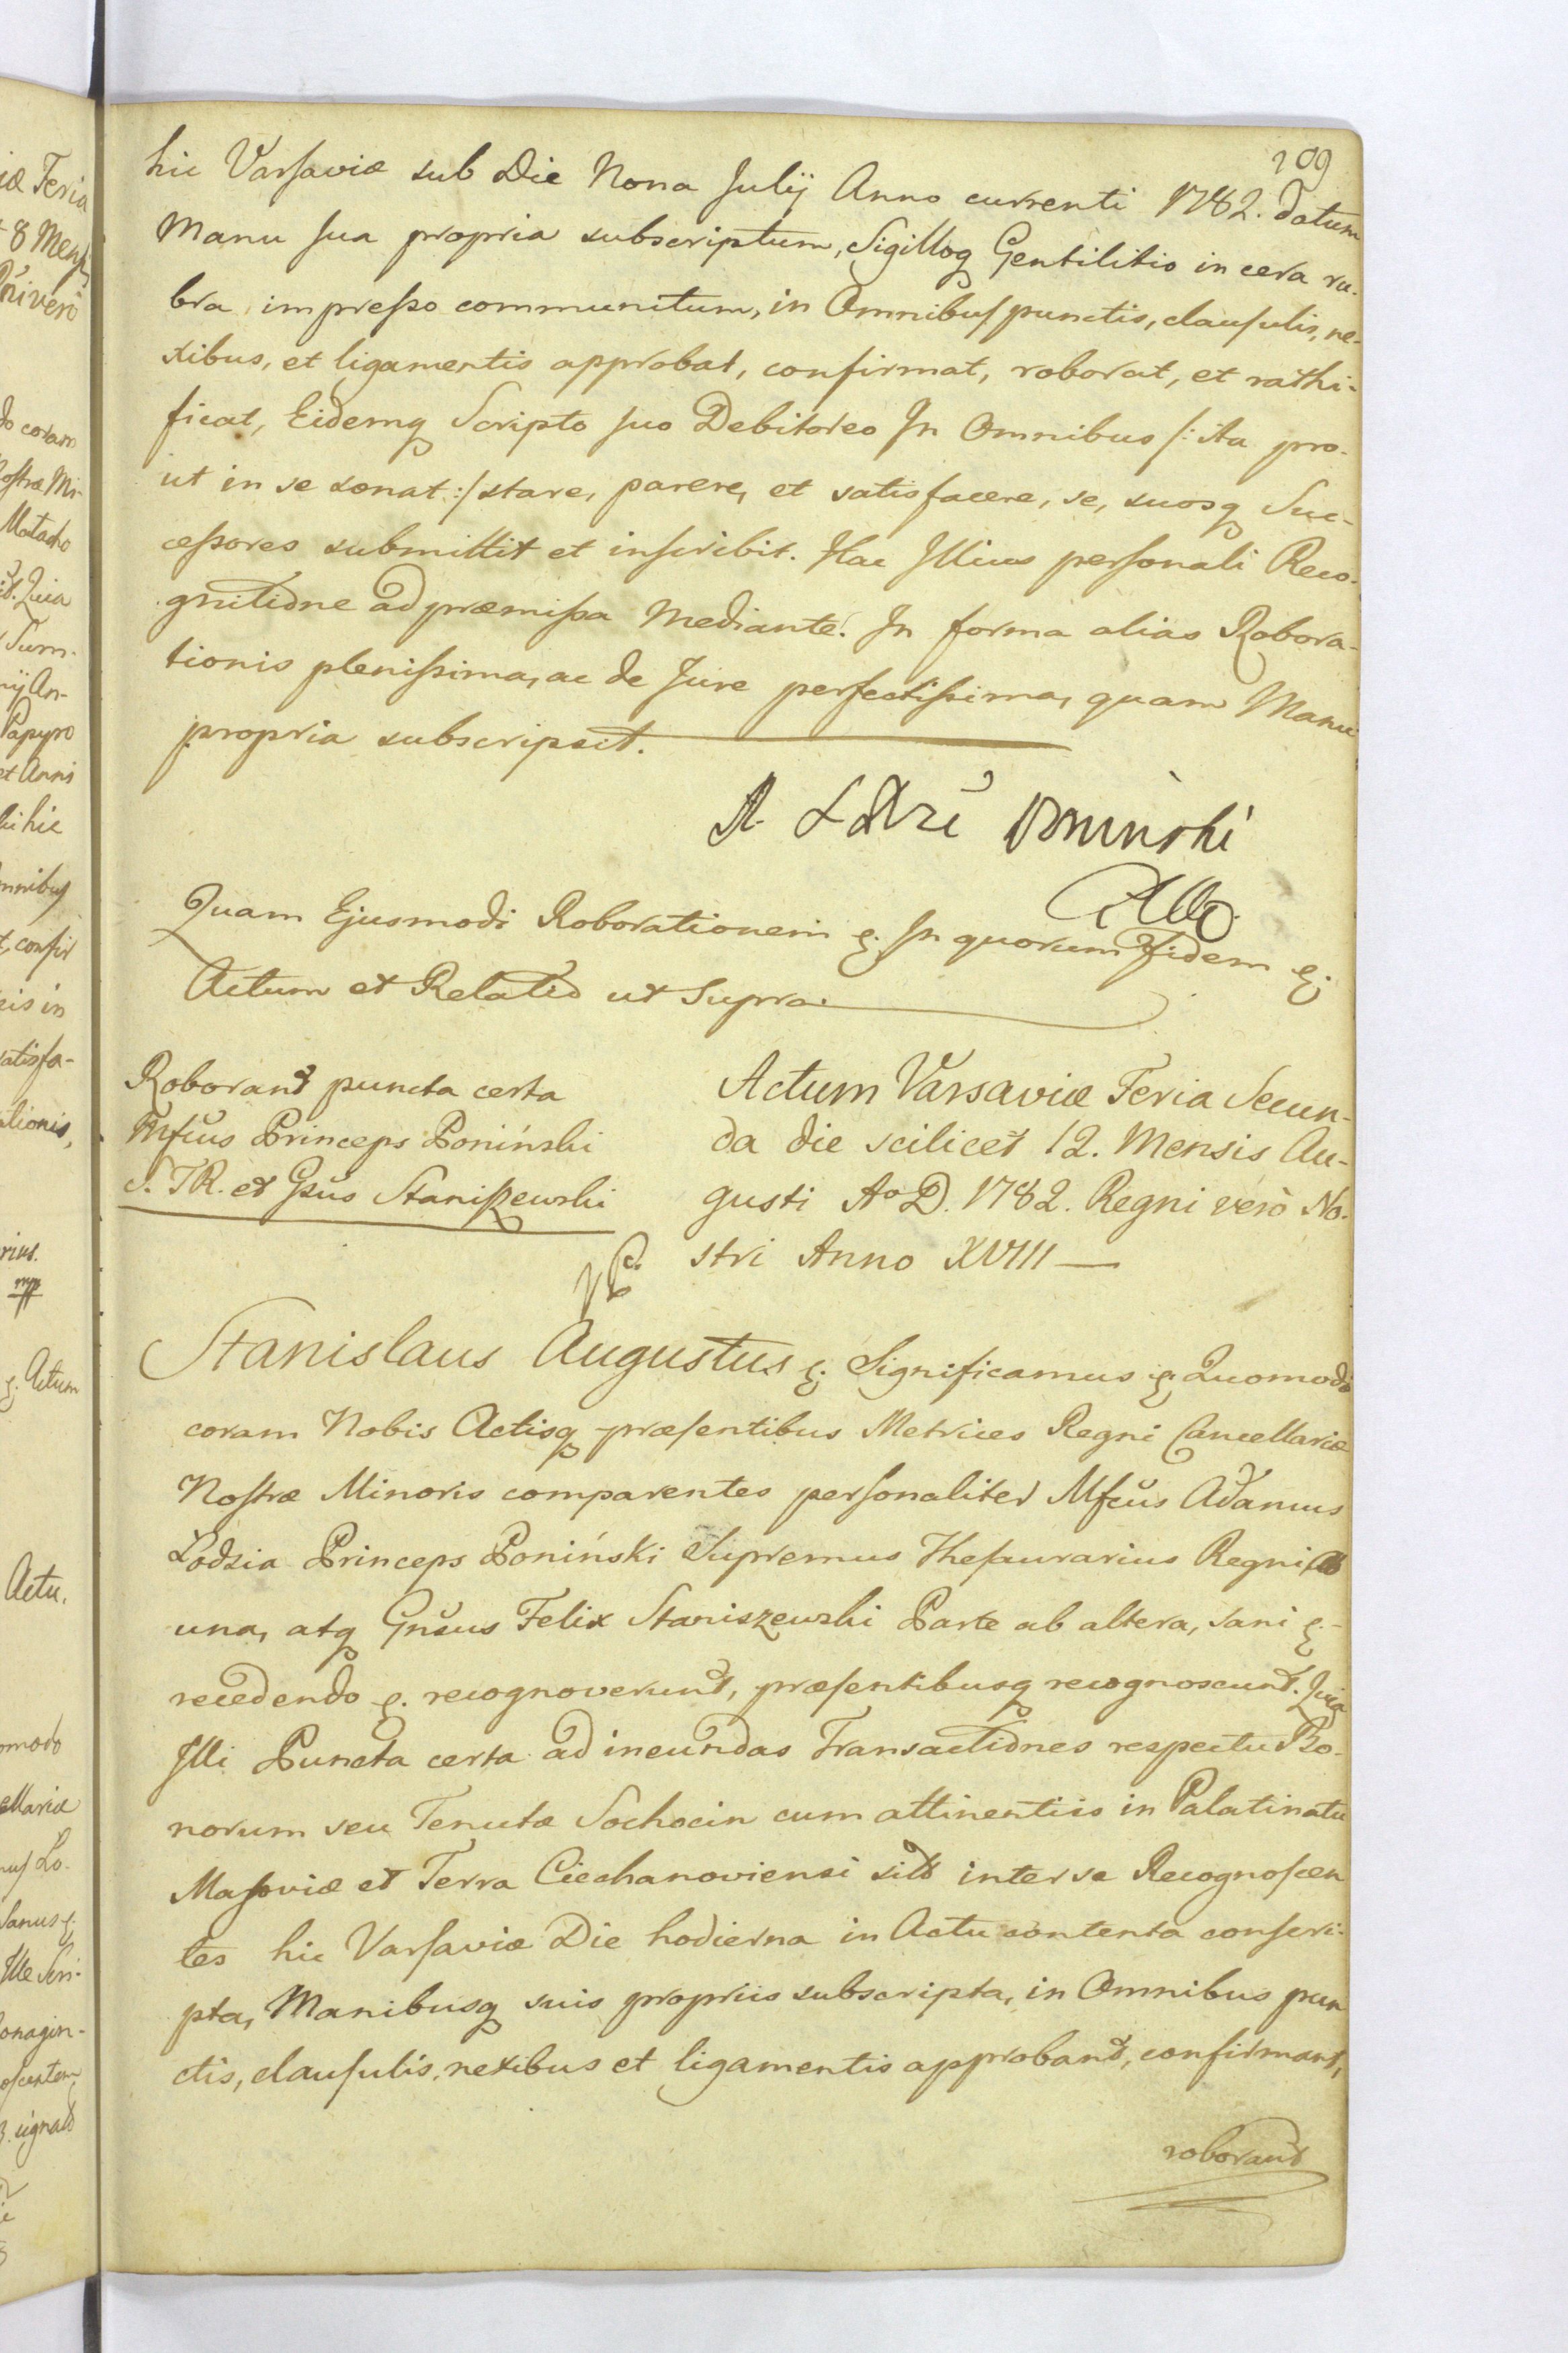 209
hic Varsaviæ sub Die Nona Julij Anno currenti 1782. datum
Manu sua propria subscriptum, Sigilloq Gentilitio in cera ru-
bra impresso communitum, in Omnibus punctis, clausulis, ne-
xibus, et ligamentis approbat, confirmat, roborat, et rathi-
ficat, Eidemq Scripto suo Debitoreo In Omnibus /: ita pro-
ut in se sonat :/ stare, parere, et satisfacere, se, suosq Suc-
cessores submittit et inscribit. Hac Illius personali Reco-
gnitione ad præmissa Mediante. In forma alias Robora-
tionis plenissima, ac de Jure perfectissima, quam Manu
propria subscripsit.
A Poninski
Quam Ejusmodi Roborationem &. In quorum Fidem &.
Actum et Relatio ut Supra.
Roborant puncta certa
Mfcus Princeps Poniński
S. T R. et Gsus Staniszewski
Actum Varsaviæ Feria Secun-
da die scilicet 12. Mensis Au-
gusti Ao D. 1782. Regni verò No-
stri Anno XVIII —
Stanislaus Augustus &. Significamus &. Quomodo
coram Nobis Actisq præsentibus Metrices Regni Cancellariæ
Nostræ Minoris comparentes personaliter Mfcus Adamus
Lodzia Princeps Poniński Supremus Thesaurarius Regni Ab
una, atq Gnsus Felix Staniszewski Parte ab altera, sani &.
recedendo &. recognoverunt, præsentibusq recognoscunt. Quia
Illi Puncta certa ad ineundas Transactiones respectu Bo-
norum seu Tenutæ Sochocin cum attinentiis in Palatinatu
Masoviæ et Terra Ciechanoviensi sit inter se Recognoscen
tes hic Varsaviæ Die hodierna in Actu contenta conscri-
pta, Manibusq suis propriis subscripta, in Omnibus pun
ctis, clausulis, nexibus et ligamentis approbant, confirmant,
roborant